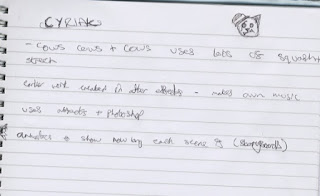 CYRIAK
- COWS COWS + COWS uses lots of squash +
stretch
earlier work created in after effects - makes own music
uses aftereffects + photoshop
to show how long each scene is (storyboards)